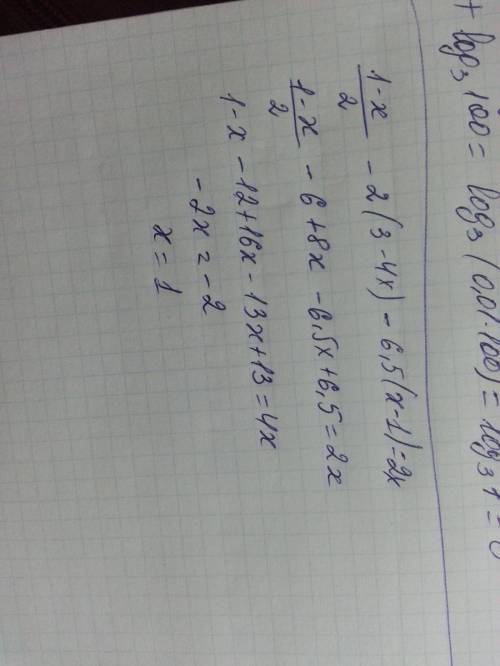 + log₃100 = log₃(0,01·100) = log₃1 = 0
(1-x)/2 - 2(3-4x) - 6,5(x-1)=2x
(1-x)/2 - 6+8x - 6,5x+6,5=2x
1-x-12+16x-13x+13=4x
-2x=-2
x=1